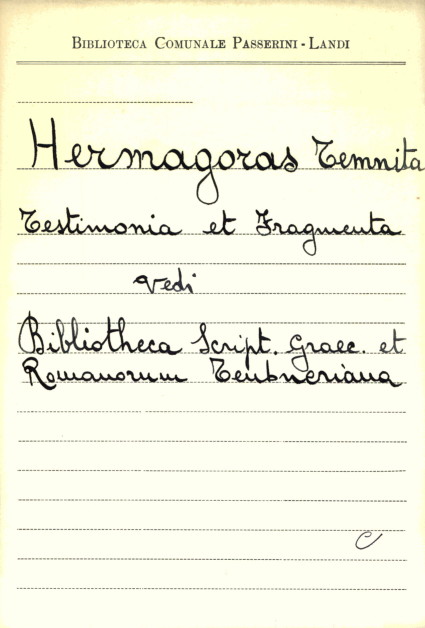 BIBLIOTECA COMUNALE PASSERINI - LANDI
Hermagoras Temnita
Testimonia et Fragmenta
Vedi
Bibliotheca Script. Graec. et
Romanorum Teubneriana
C